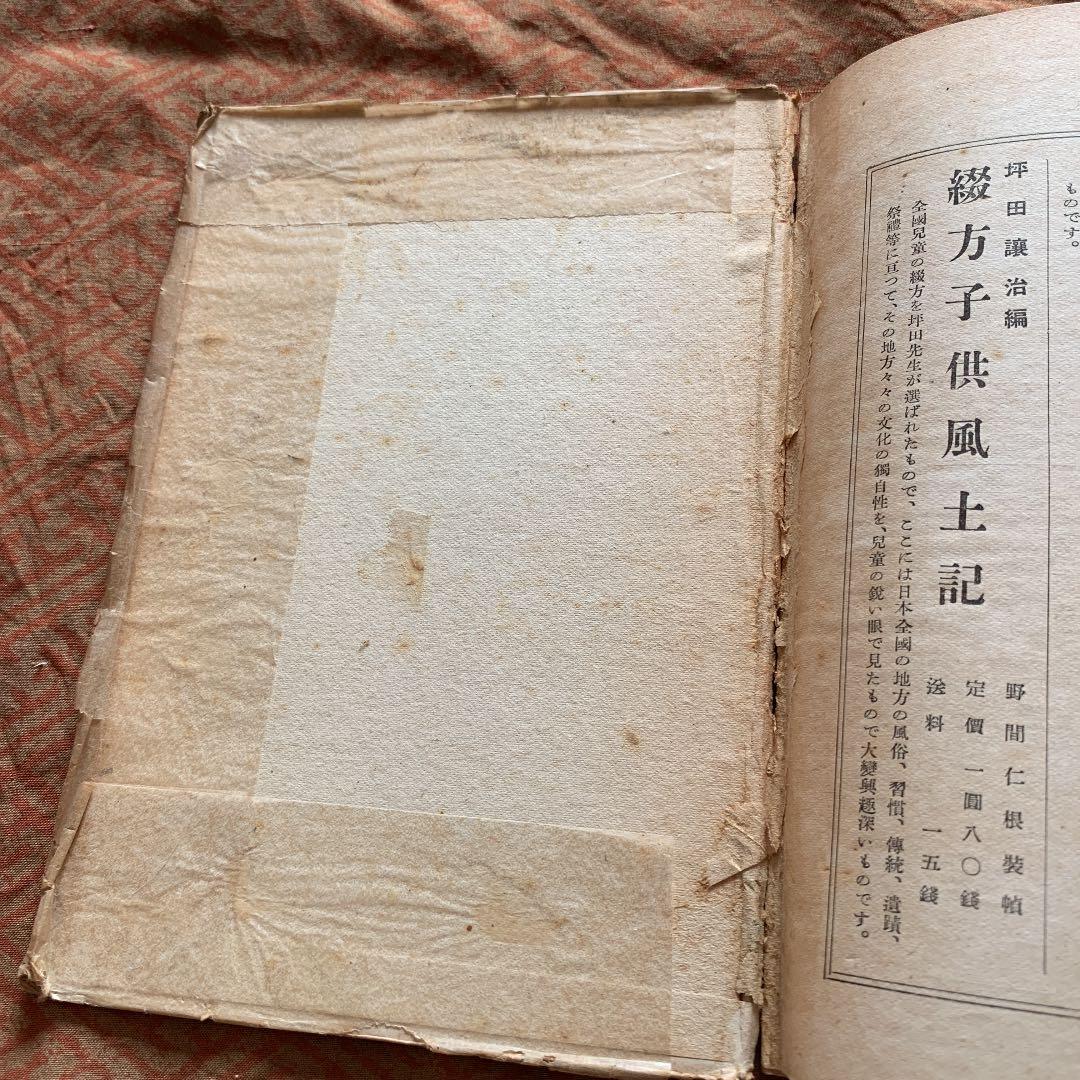 ものです。
坪田讓治編
綴方子供風土記
野間仁根裝幀
定價一圓八〇錢
送料一五錢
全國兒童の綴方を坪田先生が選ばれたもので、ここには日本全國の地方の風俗、習慣、傳統、遺蹟、
祭禮等に亘つて、その地方々々の文化の獨自性を、兒童の銳い眼で見たもので大變興趣深いものです。